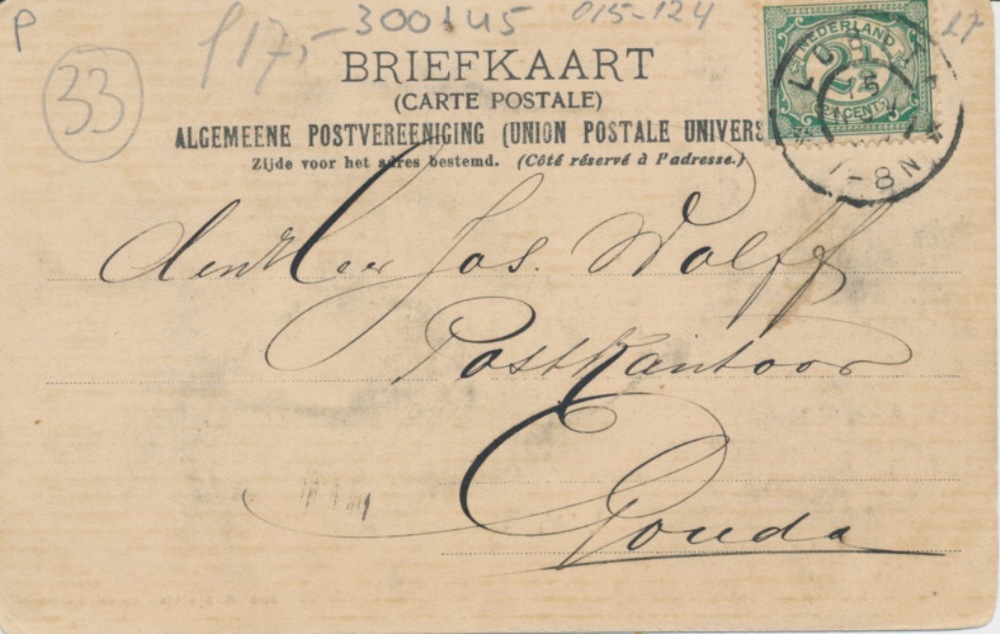 P
f 17,- 300845 015-124
33
BRIEFKAART
(CARTE POSTALE)
ALGEMEENE POSTVEREENIGING (UNION POSTALE UNIVERS
Zijde voor het adres bestemd. (Côté réservé à l'adresse.)
NEDERLAND
2½
CENT
7-8N
den Heer Jos. Wolff
Postkantoor
Gouda